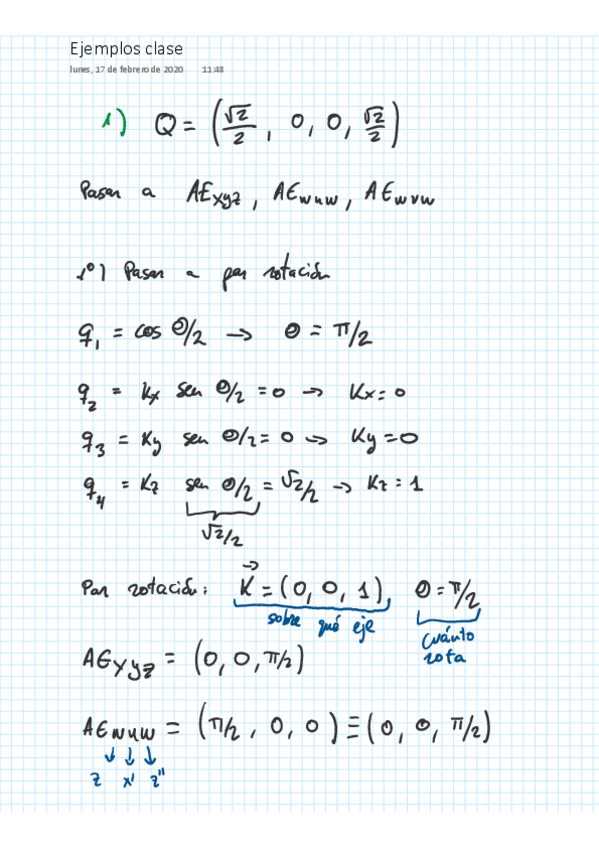 Ejemplos clase
lunes, 17 de febrero de 2020 11:48
1) Q = (√2/2, 0, 0, √2/2)
Pasar a AExyz, AEwuw, AEwvw
1º) Pasar a par rotación
q₁ = cos θ/2 → θ = π/2
q₂ = Kx sen θ/2 = 0 → Kx = 0
q₃ = Ky sen θ/2 = 0 → Ky = 0
q₄ = Kz sen θ/2 = √2/2 → Kz = 1
√2/2
Par rotación: K⃗ = (0, 0, 1), θ = π/2
sobre qué eje cuánto rota
AExyz = (0, 0, π/2)
AEwuw = (π/2, 0, 0) ≡ (0, 0, π/2)
↓ ↓ ↓
z x' z''